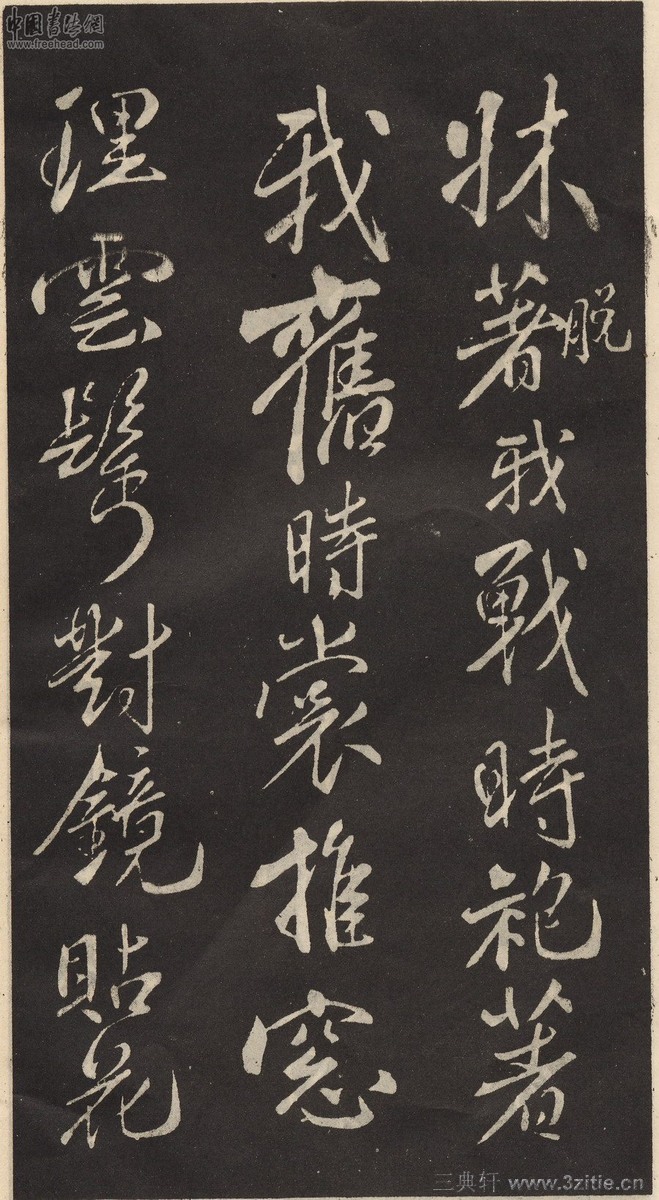 牀著我戰時袍著
脱
我舊時裳推窓
理雲鬢對鏡貼花
中国书法網
www.freehead.com
三典轩 www.3zitie.cn